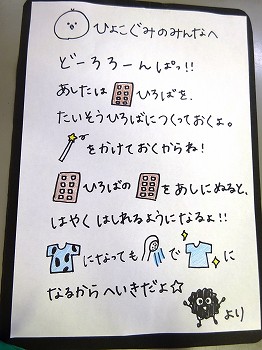 ひよこぐみのみんなへ
どーろろーんぱっ!!
あしたは ひろばを、
たいそうひろばにつくっておくよ。
をかけておくからね!
ひろばの をあしにぬると、
はやくはしれるようになるよ!!
になっても で に
なるからへいきだよ☆
より